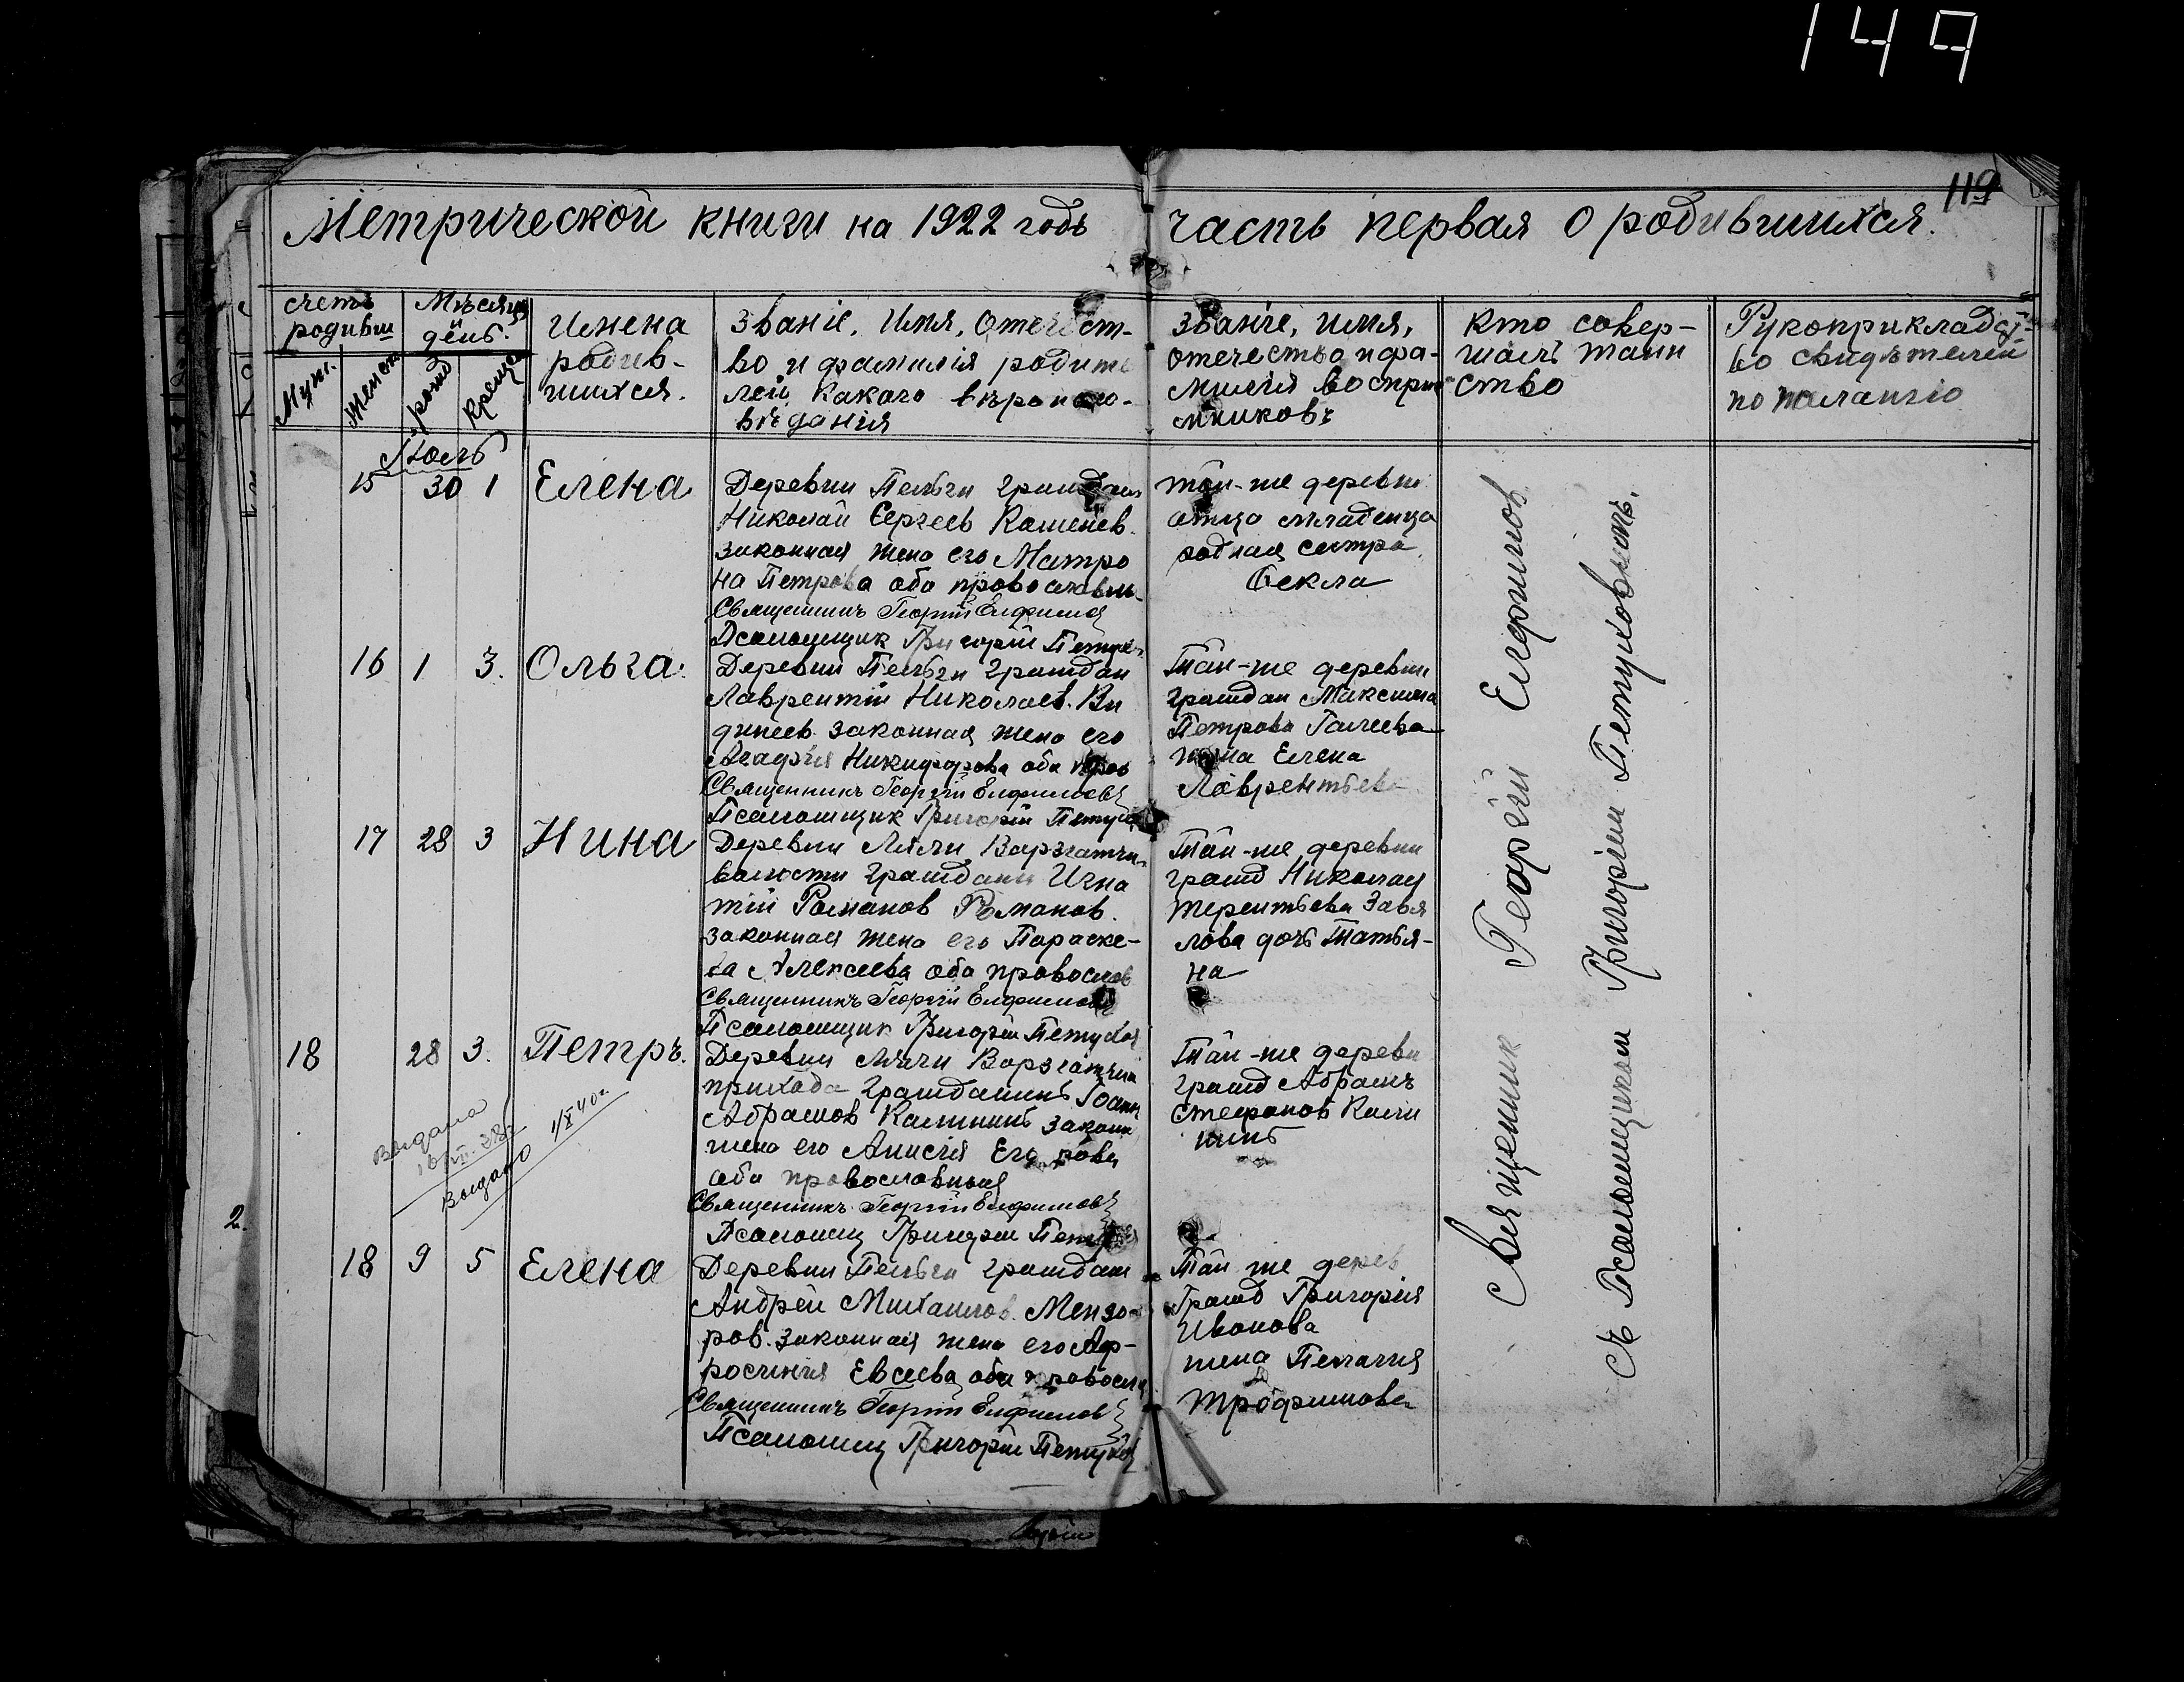 149
119
Метрической книги на 1922 годъ часть первая о родившихся.
счетъ родивш
Муж.
Женск
Мѣсяцъ и день.
рожд
крещ
Имена родив-
шихся.
Званіе, Имя, Отечест-
во и фамилія родите
лей, какаго вѣроиспо-
вѣданія
Званіе, имя,
отечество и фа-
милія воспри
мниковъ
Кто совер-
шалъ таин
ство
Рукоприкладст-
во свидѣтелей
по
Іюль
15 30 1 Елена
Деревни Пельги граждан
Николай Сергеев Кашенев.
законная жена его Матро
на Петрова оба православн
Священникъ Георгій Елфимов
Псаломщик Григорій Петух
той-же деревни
отца младенца
родная сестра
Ѳекла
16 1 3. Ольга.
Деревни Пельги граждан
Лаврентій Николаев. Ви
динеев законная жена его
Агафія Никифорова оба прав
Священникъ Георгій Елфимовъ
Псаломщик Григорій Петух
Той-же деревни
граждан Максима
Петрова Галеева
жена Елена
Лаврентьева
17 28 3 Нина
Деревни Ляли Варзгатчи
волости граждани Игна
тій Романов Романов.
законная жена его Параске-
ва Алексеева оба православ
Священникъ Георгій Елфимов
Псаломщик Григорій Петухов
Той-же деревни
гражд Николая
терентьева Завя
лова дочь Татья-
на
18 28 3. Петръ.
Деревни Ляли Варзгатчи
прихода гражданинъ Іоанн
Абрамов Калининъ законн
жена его Анисія Егорова
оба православныя
Священникъ Георгій Елфимовъ
Псаломщ Григорій Петух
Той-же деревн
гражд Абрамъ
Стефанов Кали
нинъ
Выдана
Выдано 1/X 40 г.
2.
18 9 5 Елена
Деревни Пельги граждан
Андрей Михаилов. Мензо-
ров. законная жена его Аф-
росинія Евсеева оба православ
Священникъ Георгій Елфимовъ
Псаломщ Григорій Петухов
Той же дерев
Гражд Григорія
Иванова
жена Пелагія
Трофимова
Священник Георгій Елфимов
съ Псаломщиком Григоріем Петуховымъ.